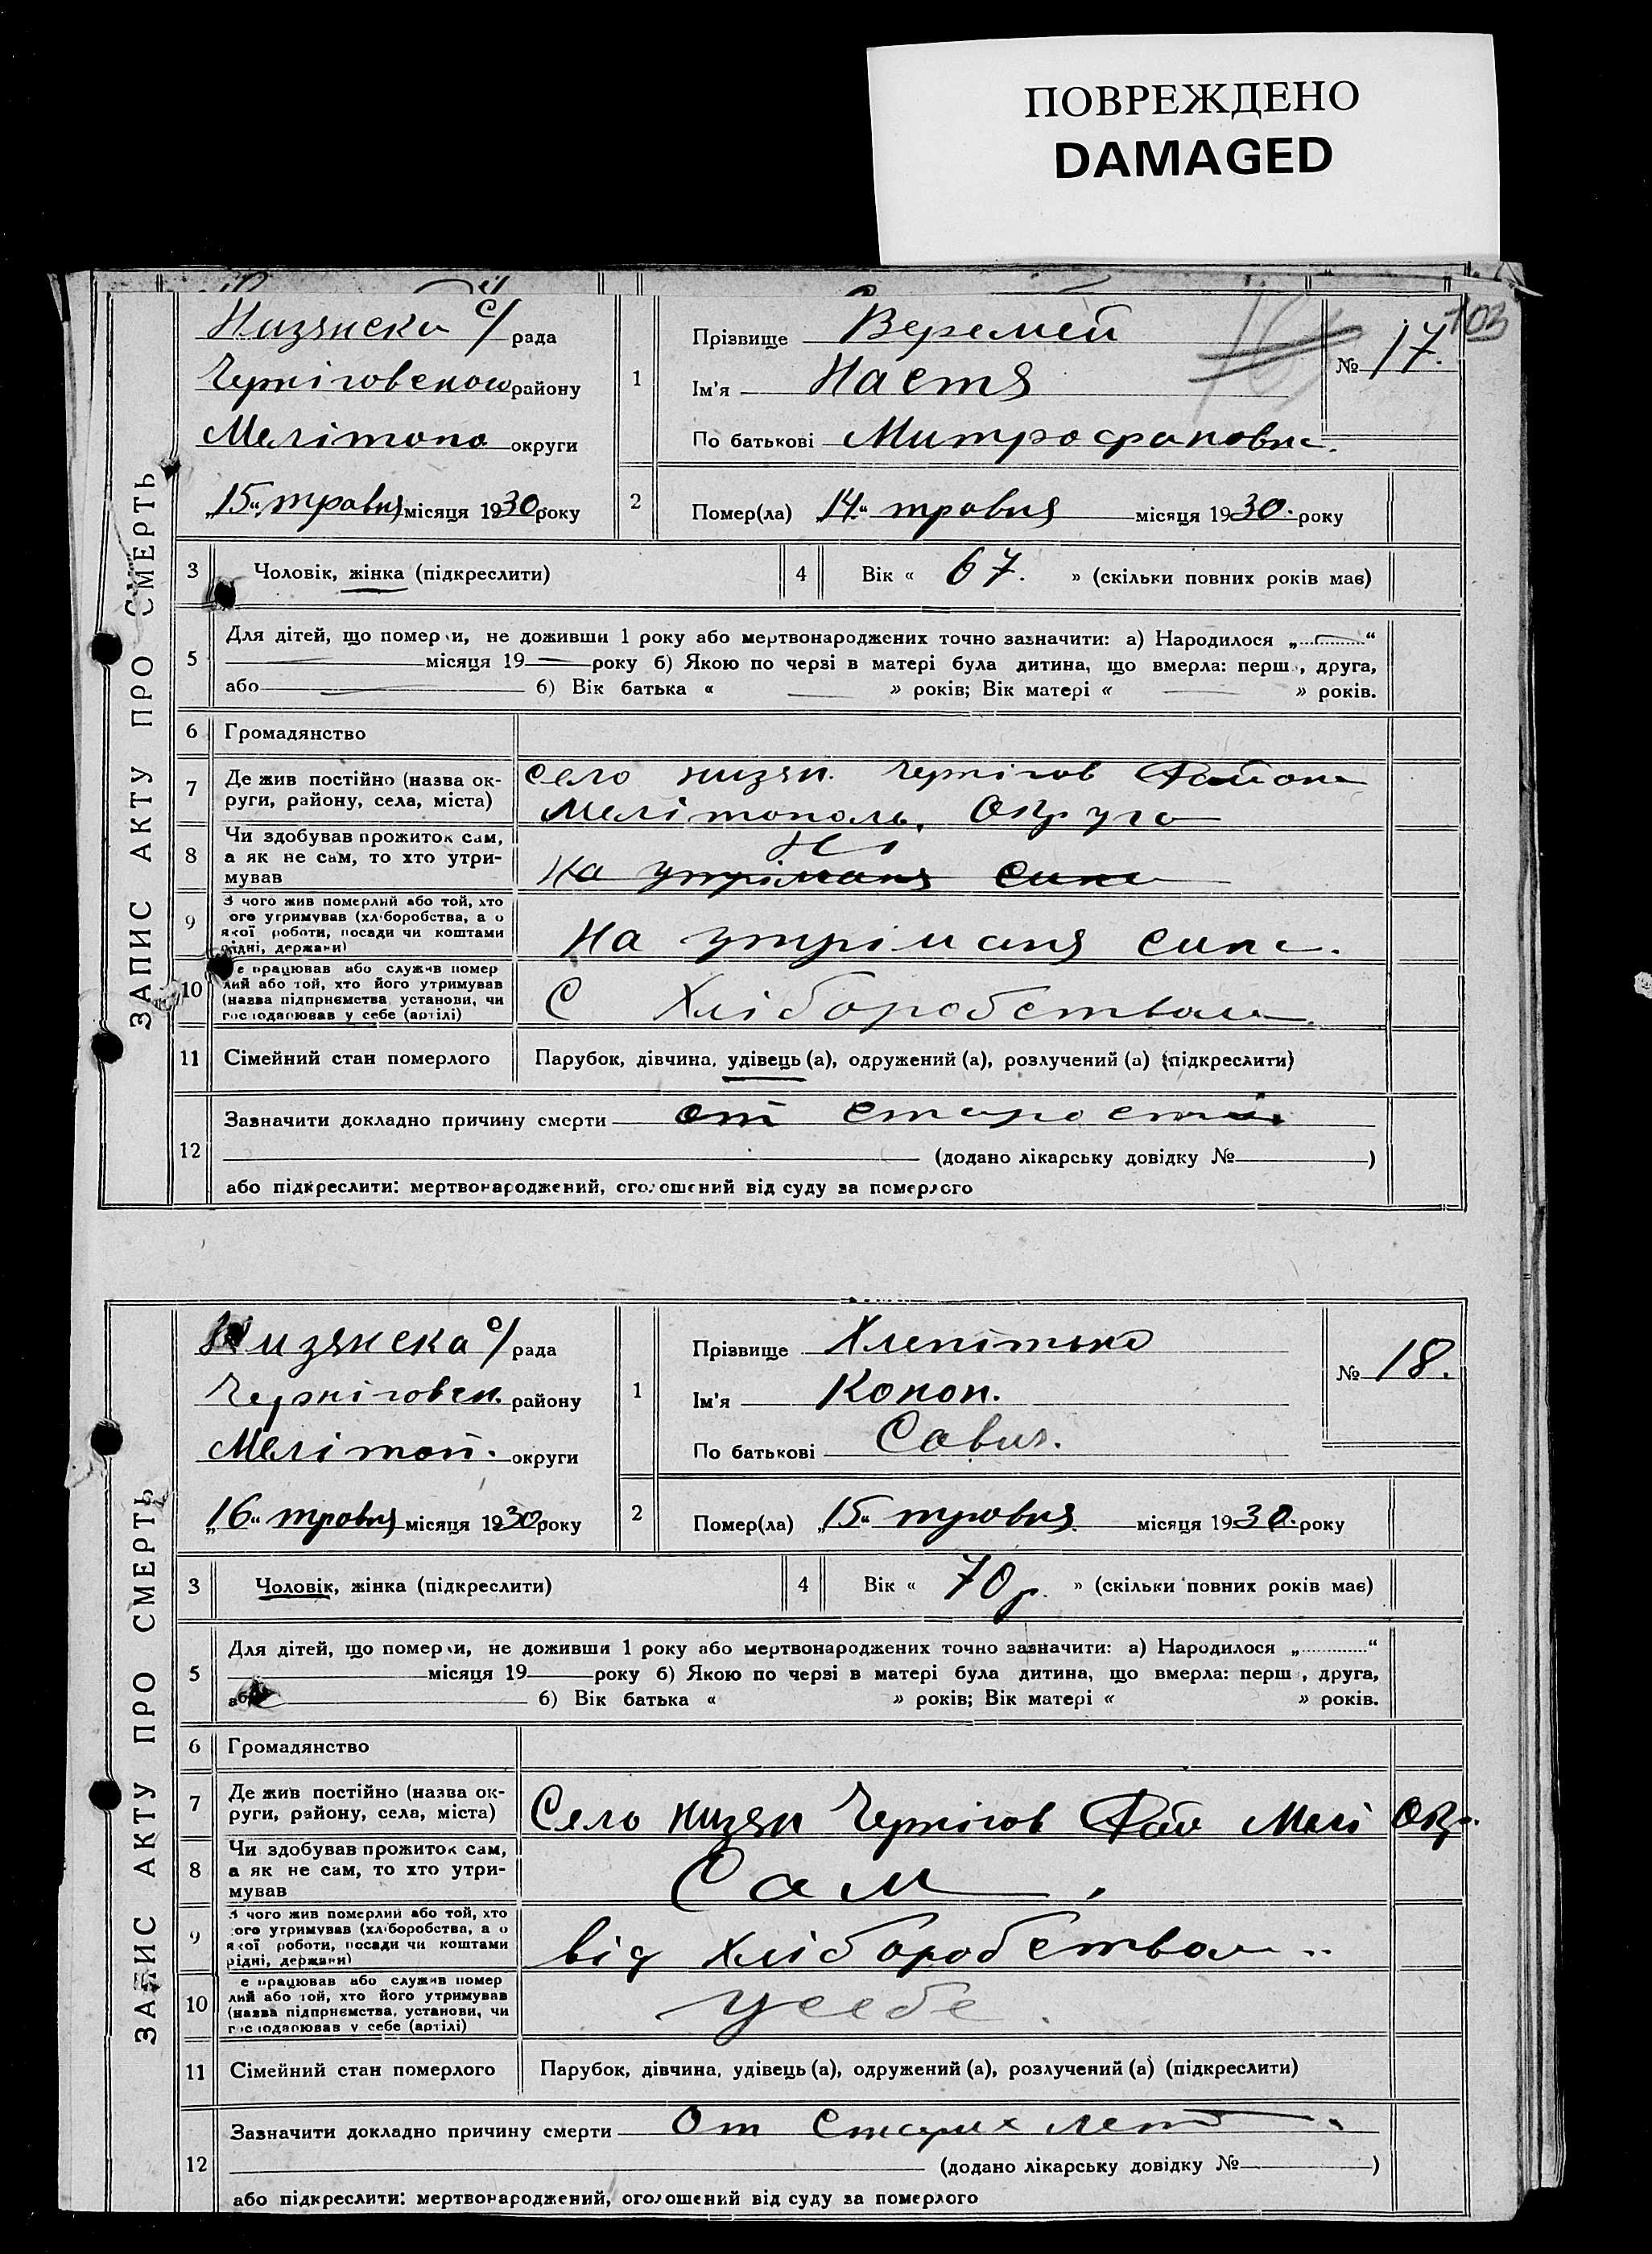 ПОВРЕЖДЕНО
DAMAGED
103
ЗАПИС АКТУ ПРО СМЕРТЬ
Низянска с/рада
Чернiговською району
Мелiтопо округи
„15“ травня місяця 1930 року
1
Прізвище Веремей
Ім'я Настя
По батькові Митрофановна.
№ 17.
2
Помер(ла) „14“ травня місяця 1930. року
3 Чоловік, жінка (підкреслити)
4 Вік « 67. » (скільки повних років має)
5 Для дітей, що померли, не доживши 1 року або мертвонароджених точно зазначити: а) Народилося „ “
місяця 19 року б) Якою по черзі в матері була дитина, що вмерла: перш , друга,
або б) Вік батька « » років; Вік матері « » років.
6 Громадянство
7 Де жив постійно (назва ок-
руги, району, села, міста)
село низян. чернігов Району
Мелітополь. Округа
8 Чи здобував прожиток сам,
а як не сам, то хто утри-
мував
Ні
На утріманя сина
9 З чого жив померлий або той, хто
ого утримував (хліборобства, а о
якої роботи, посади чи коштами
рідні, держави)
На утріманя сина.
10 е працював або служив помер
лий або той, хто його утримував
(назва підприємства, установи, чи
господарював у себе (артілі)
С Хліборобством.
11 Сімейний стан померлого
Парубок, дівчина, удівець (а), одружений (а), розлучений (а) (підкреслити)
12 Зазначити докладно причину смерти от старости
(додано лікарську довідку № )
або підкреслити: мертвонароджений, оголошений від суду за померлого
ЗАПИС АКТУ ПРО СМЕРТЬ
Низянска с/рада
Чернiговск. району
Мелітоп. округи
„16“ травня місяця 1930. року
1
Прізвище
Ім'я Конон.
По батькові Савич.
№ 18.
2
Помер(ла) „15“ травня місяця 1930. року
3 Чоловік, жінка (підкреслити)
4 Вік « 70 р. » (скільки повних років має)
5 Для дітей, що померли, не доживши 1 року або мертвонароджених точно зазначити: а) Народилося „ “
місяця 19 року б) Якою по черзі в матері була дитина, що вмерла: перш , друга,
або б) Вік батька « » років; Вік матері « » років.
6 Громадянство
7 Де жив постійно (назва ок-
руги, району, села, міста)
Село низян Чернігов Рай Мелі Окр.
8 Чи здобував прожиток сам,
а як не сам, то хто утри-
мував
Сам.
9 З чого жив померлий або той, хто
ого утримував (хліборобства, а о
якої роботи, посади чи коштами
рідні, держави)
від хліборобствам..
10 е працював або служив помер
лий або той, хто його утримував
(назва підприємства, установи, чи
господарював у себе (артілі)
усебе.
11 Сімейний стан померлого
Парубок, дівчина, удівець (а), одружений (а), розлучений (а) (підкреслити)
12 Зазначити докладно причину смерти От старих лет
(додано лікарську довідку № )
або підкреслити: мертвонароджений, оголошений від суду за померлого